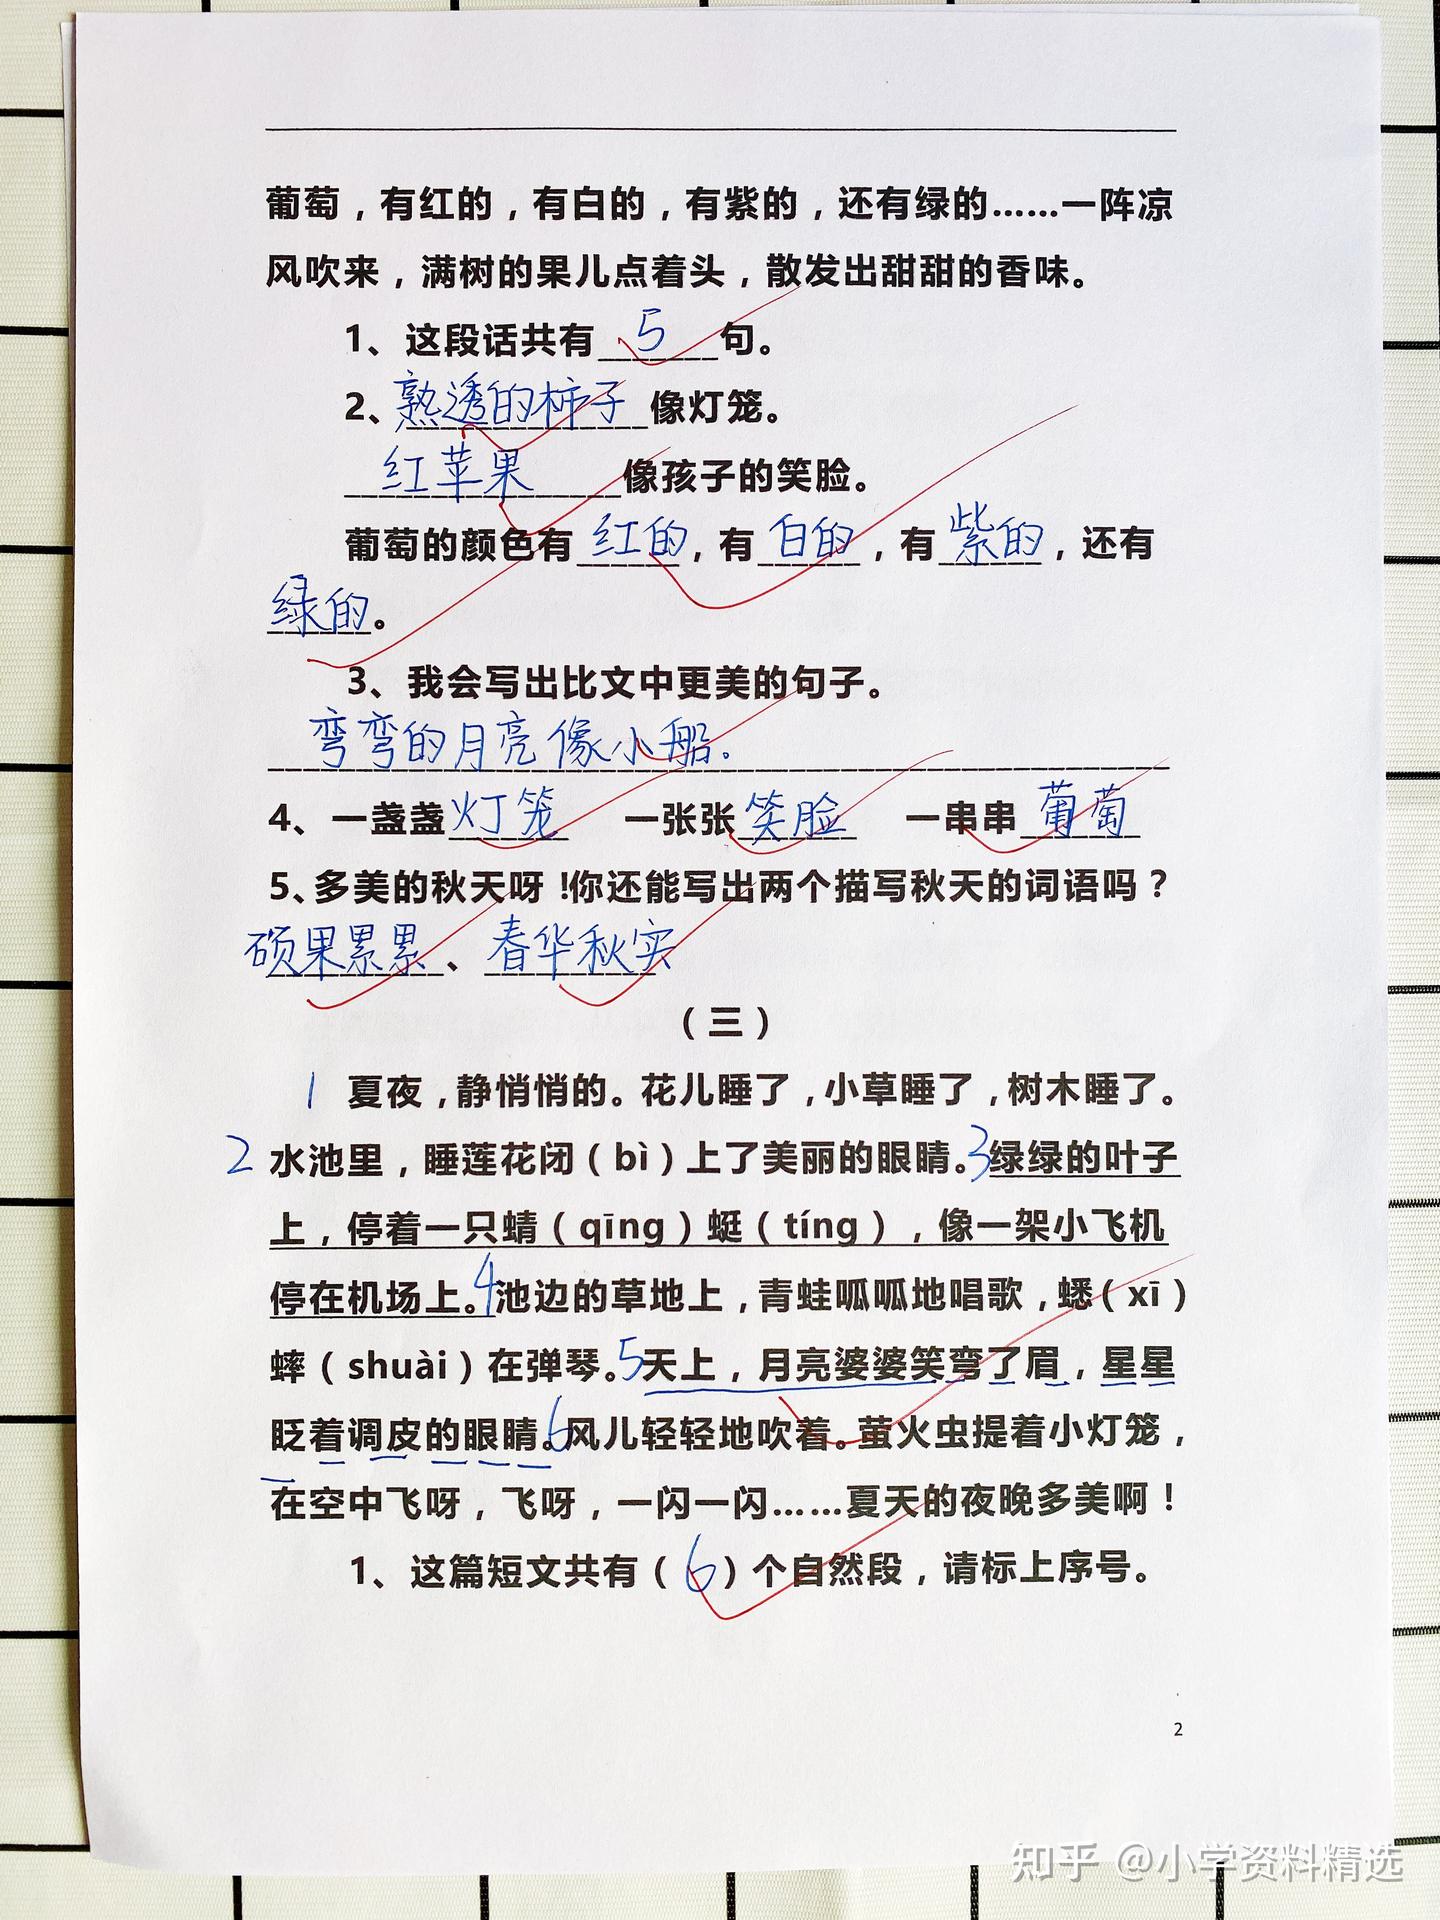 葡萄，有红的，有白的，有紫的，还有绿的……一阵凉
风吹来，满树的果儿点着头，散发出甜甜的香味。
1、这段话共有 5 句。
2、熟透的柿子像灯笼。
红苹果像孩子的笑脸。
葡萄的颜色有红的，有白的，有紫的，还有
绿的。
3、我会写出比文中更美的句子。
弯弯的月亮像小船.
4、一盏盏灯笼 一张张笑脸 一串串葡萄
5、多美的秋天呀！你还能写出两个描写秋天的词语吗？
硕果累累、春华秋实
（三）
1 夏夜，静悄悄的。花儿睡了，小草睡了，树木睡了。
2 水池里，睡莲花闭（bì）上了美丽的眼睛。3绿绿的叶子
上，停着一只蜻（qīng）蜓（tíng），像一架小飞机
停在机场上。4池边的草地上，青蛙呱呱地唱歌，蟋（xī）
蟀（shuài）在弹琴。5天上，月亮婆婆笑弯了眉，星星
眨着调皮的眼睛。6风儿轻轻地吹着。萤火虫提着小灯笼，
在空中飞呀，飞呀，一闪一闪……夏天的夜晚多美啊！
1、这篇短文共有（6）个自然段，请标上序号。
2
知乎 @小学资料精选